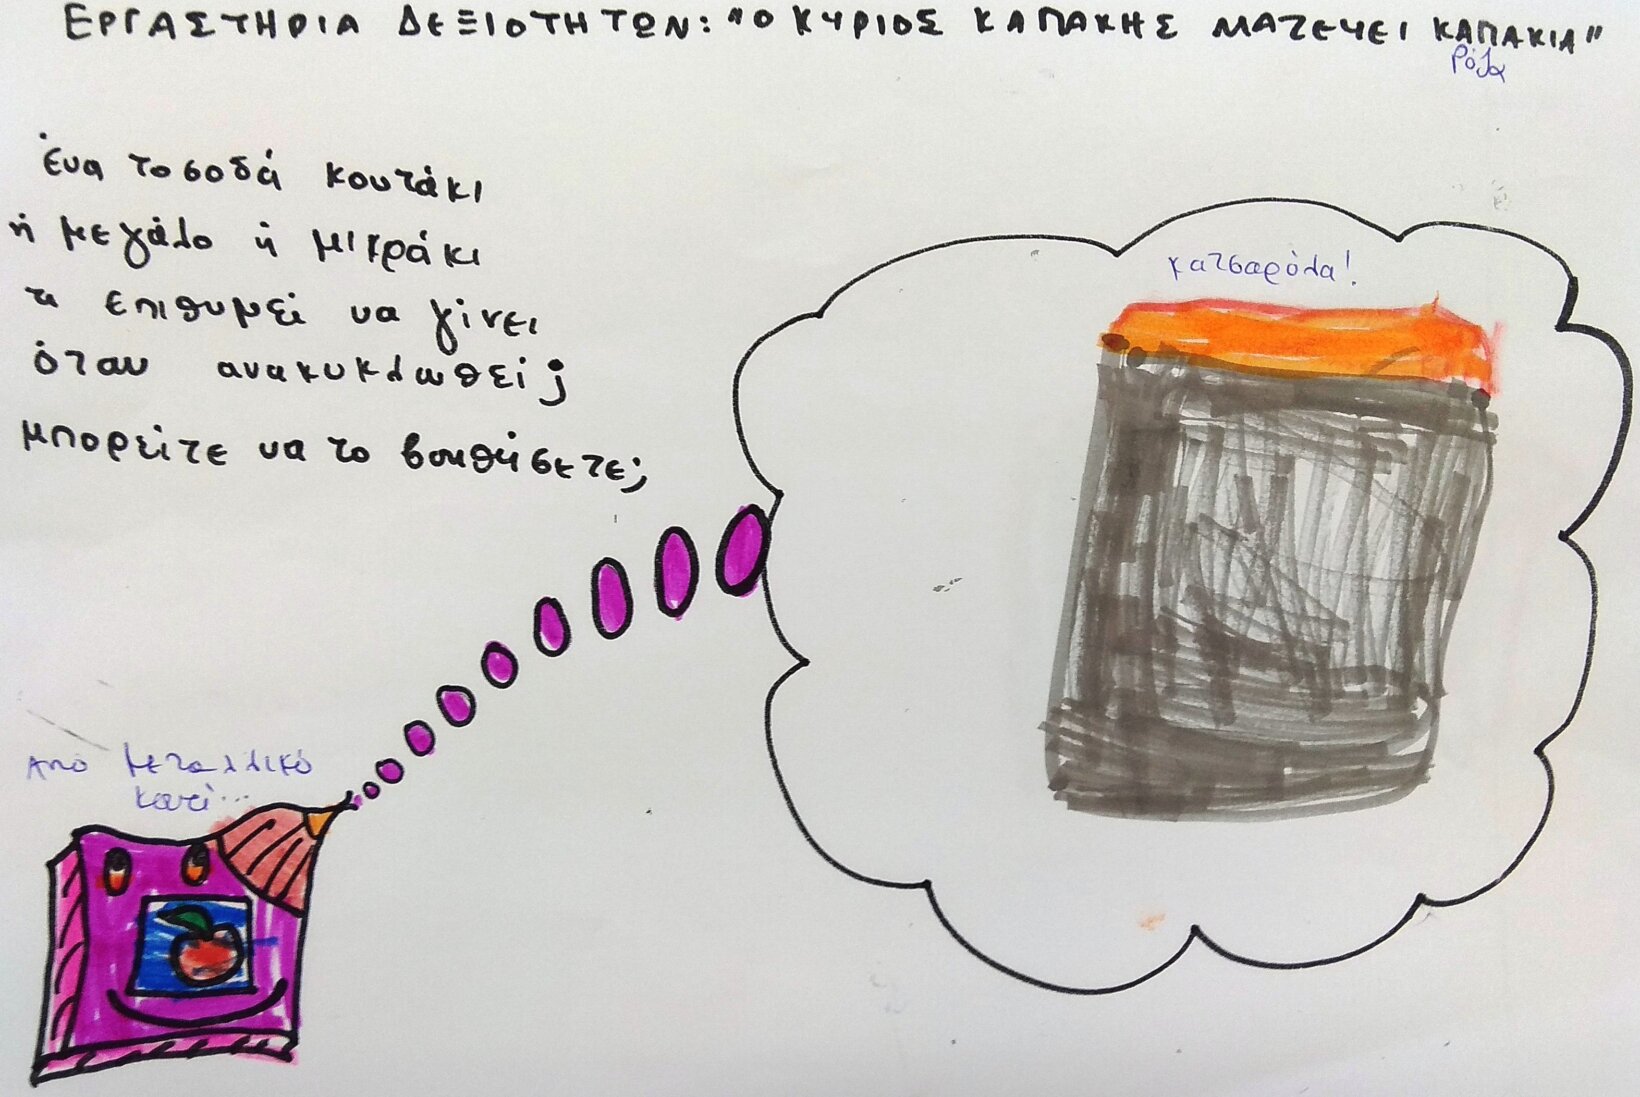 ΕΡΓΑΣΤΗΡΙΑ ΔΕΞΙΟΤΗΤΩΝ: "Ο ΚΥΡΙΟΣ ΚΑΠΑΚΗΣ ΜΑΖΕΥΕΙ ΚΑΠΑΚΙΑ"
Ρόζα
ένα τοσοδά κουτάκι
ή μεγάλο ή μικράκι
τι επιθυμεί να γίνει
όταν ανακυκλωθεί;
μπορείτε να το βοηθήσετε;
κατσαρόλα!
Από μεταλλικό
κουτί...